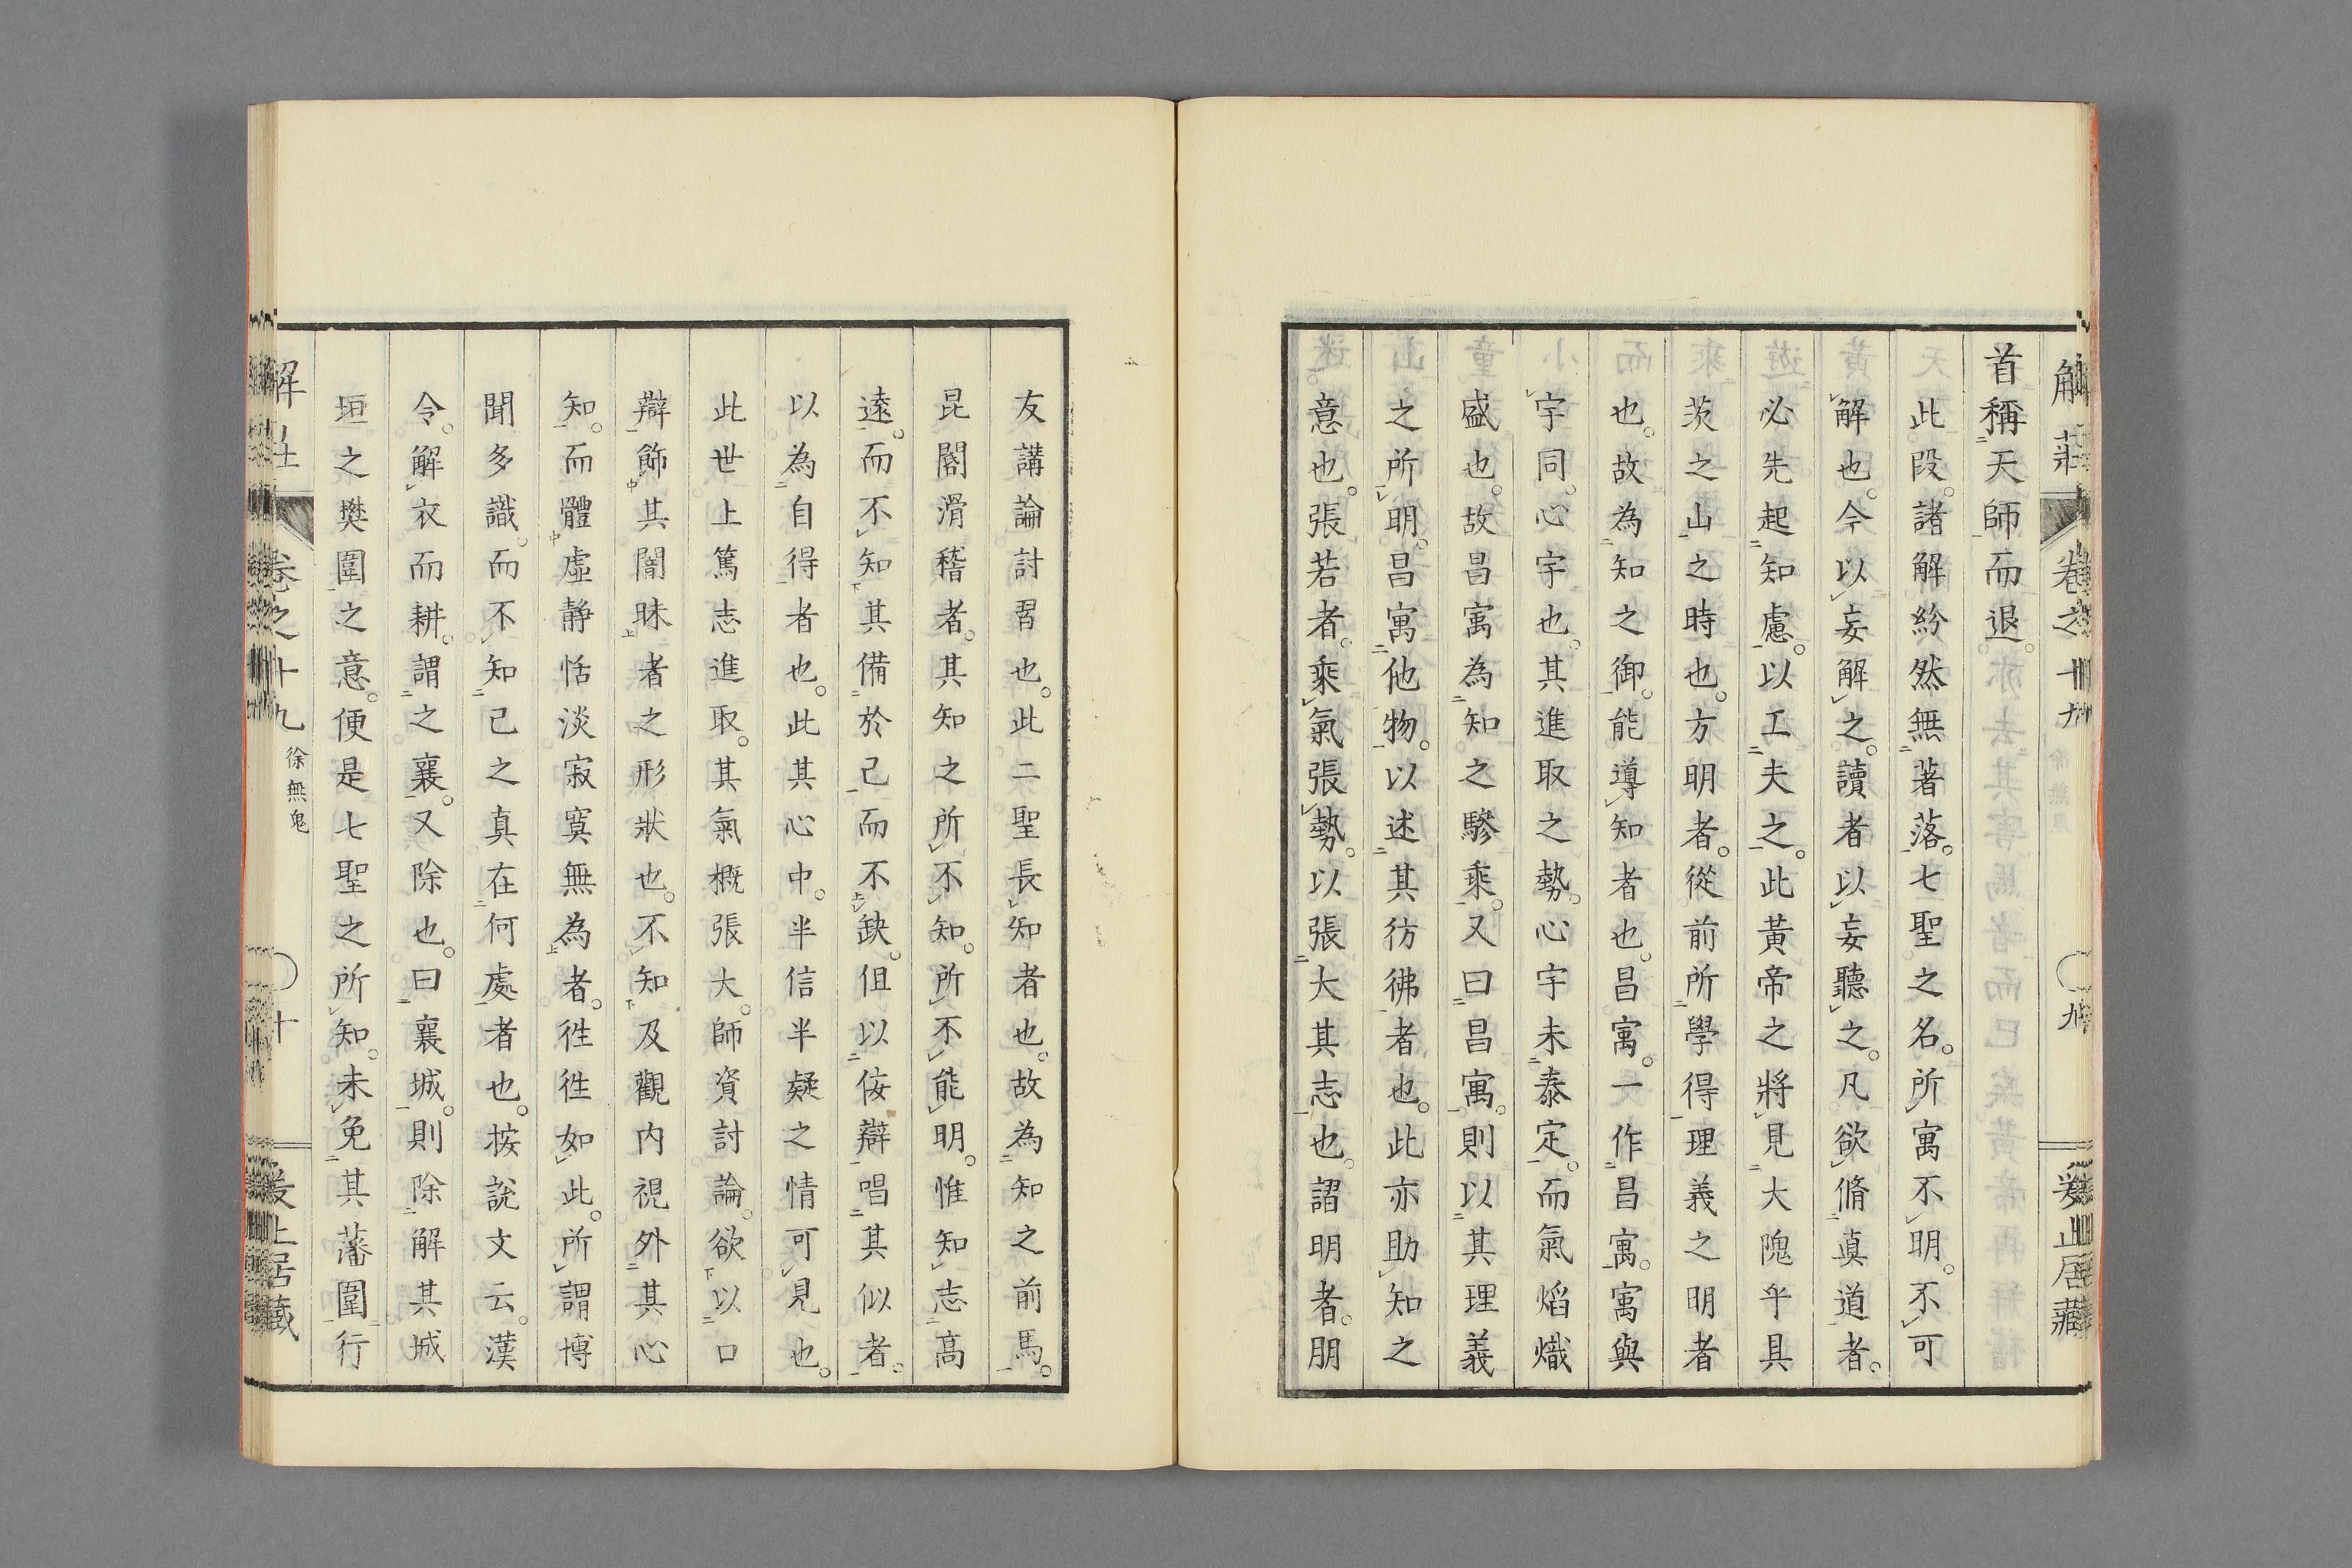 解莊 卷之十九 ○九 爰止居藏
首稱天師而退。
此段。諸解紛然無著落。七聖之名。所寓不明。不可
解也。今以妄解之。讀者以妄聽之。凡欲脩真道者。
必先起知慮。以工夫之。此黃帝之將見大隗乎具
茨之山之時也。方明者。從前所學得理義之明者
也。故為知之御。能導知者也。昌寓。一作昌寓。寓與
宇同。心宇也。其進取之勢。心宇未泰定。而氣焰熾
盛也。故昌寓為知之驂乘。又曰昌寓。則以其理義
之所明。昌寓他物。以述其彷彿者也。此亦助知之
意也。張若者。乘氣張勢。以張大其志也。謵明者。朋
友講論討習也。此二聖長知者也。故為知之前馬。
昆閽滑稽者。其知之所不知。所不能明。惟知志高
遠。而不知其備於己而不缺。但以侫辯唱其似者。
以為自得者也。此其心中。半信半疑之情可見也。
此世上篤志進取。其氣概張大。師資討論。欲以口
辯飾其闇昧者之形狀也。不知及觀内視外其心
知。而體虛靜恬淡寂寞無為者。徃徃如此。所謂博
聞多識。而不知己之真在何處者也。按說文云。漢
令。解衣而耕。謂之襄。又除也。曰襄城。則除解其城
垣之樊圍之意。便是七聖之所知。未免其藩圍行
解莊 卷之十九 徐無鬼 ○十 爰止居藏